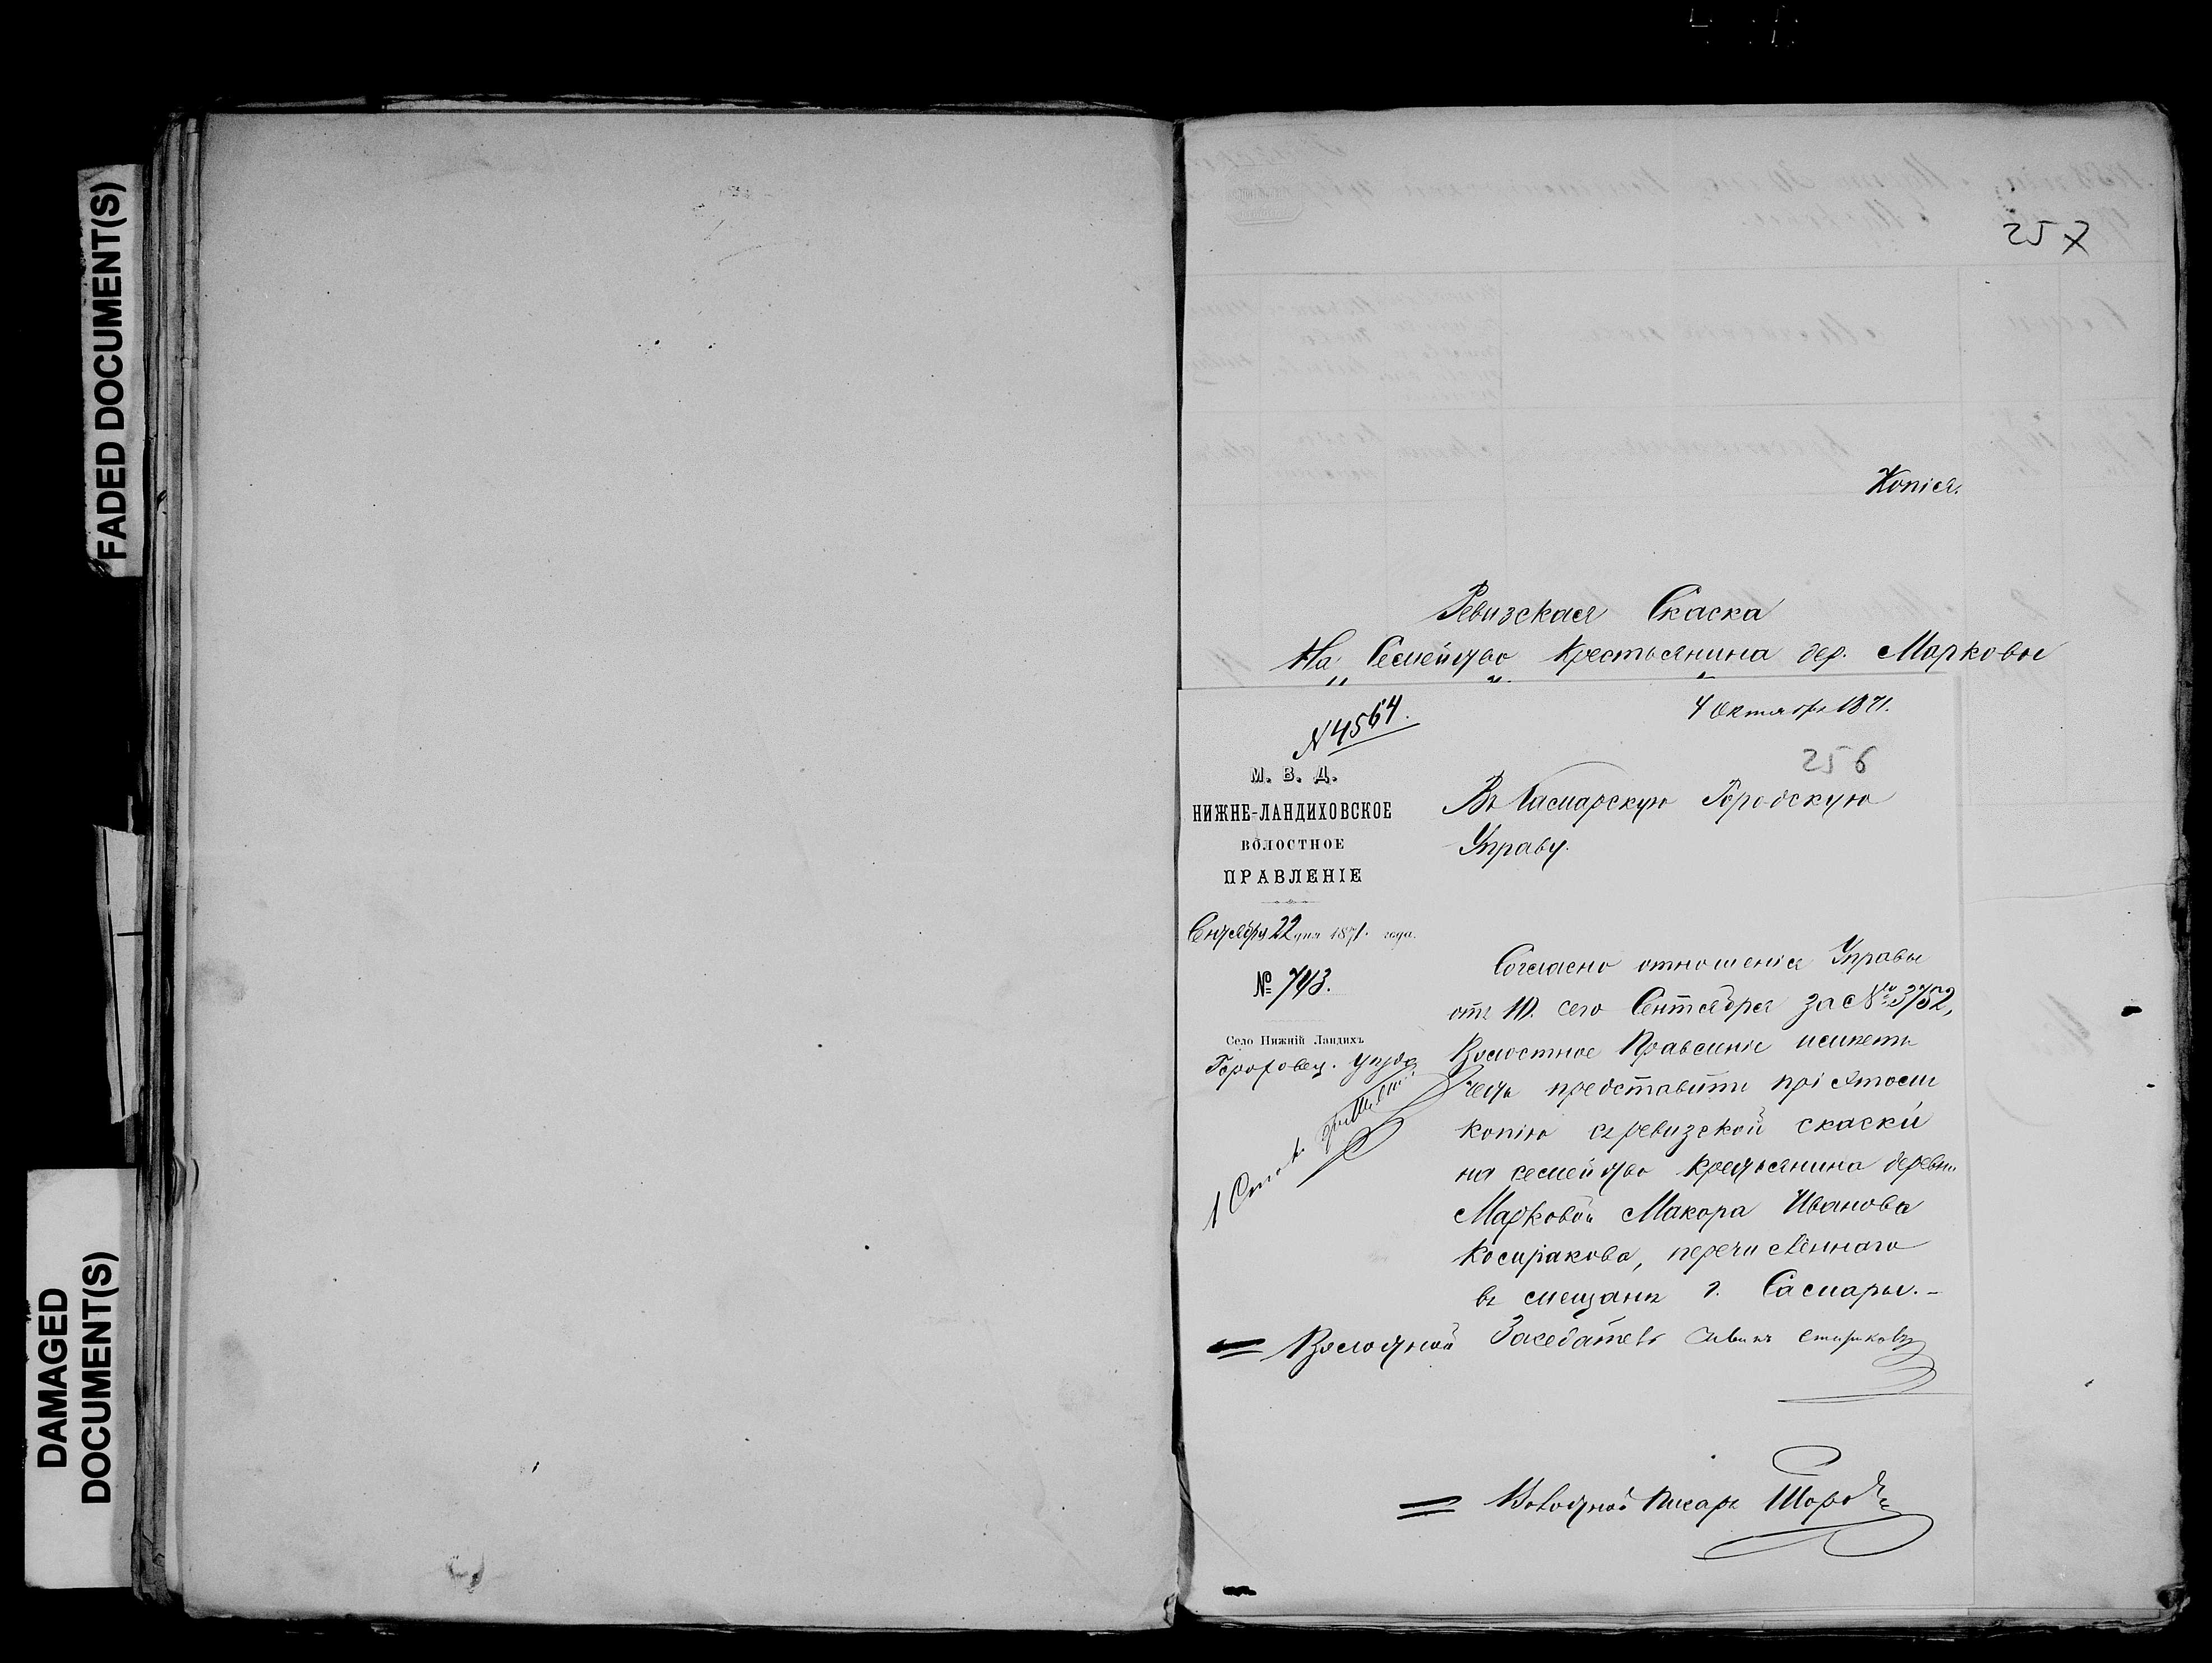 FADED DOCUMENT(S)
DAMAGED
DOCUMENT(S)
257
Копія.
Ревизская Скаска
На Семейство Крестьянина дер. Марковы
N 4564.
4 Октября 1871.
256
М. В. Д.
НИЖНЕ-ЛАНДИХОВСКОЕ
ВОЛОСТНОЕ
ПРАВЛЕНІЕ
Сентября 22 дня 1871. года.
№ 743.
Село Нижній Ландихъ
Гороховец. уѣзда
1 Стол
Въ Самарскую Городскую
Управу.
Согласно отношенія Управы
отъ 10. сего Сентября за № 3752,
Волостное Правленіе имѣетъ
честь представить при этомъ
копію съ ревизской скаски
на семейство крестьянина деревни
Марковой Макора Иванова
перечисленнаго
въ мещанъ г. Самары. -
Волостной Заседатель
Волостной Писарь